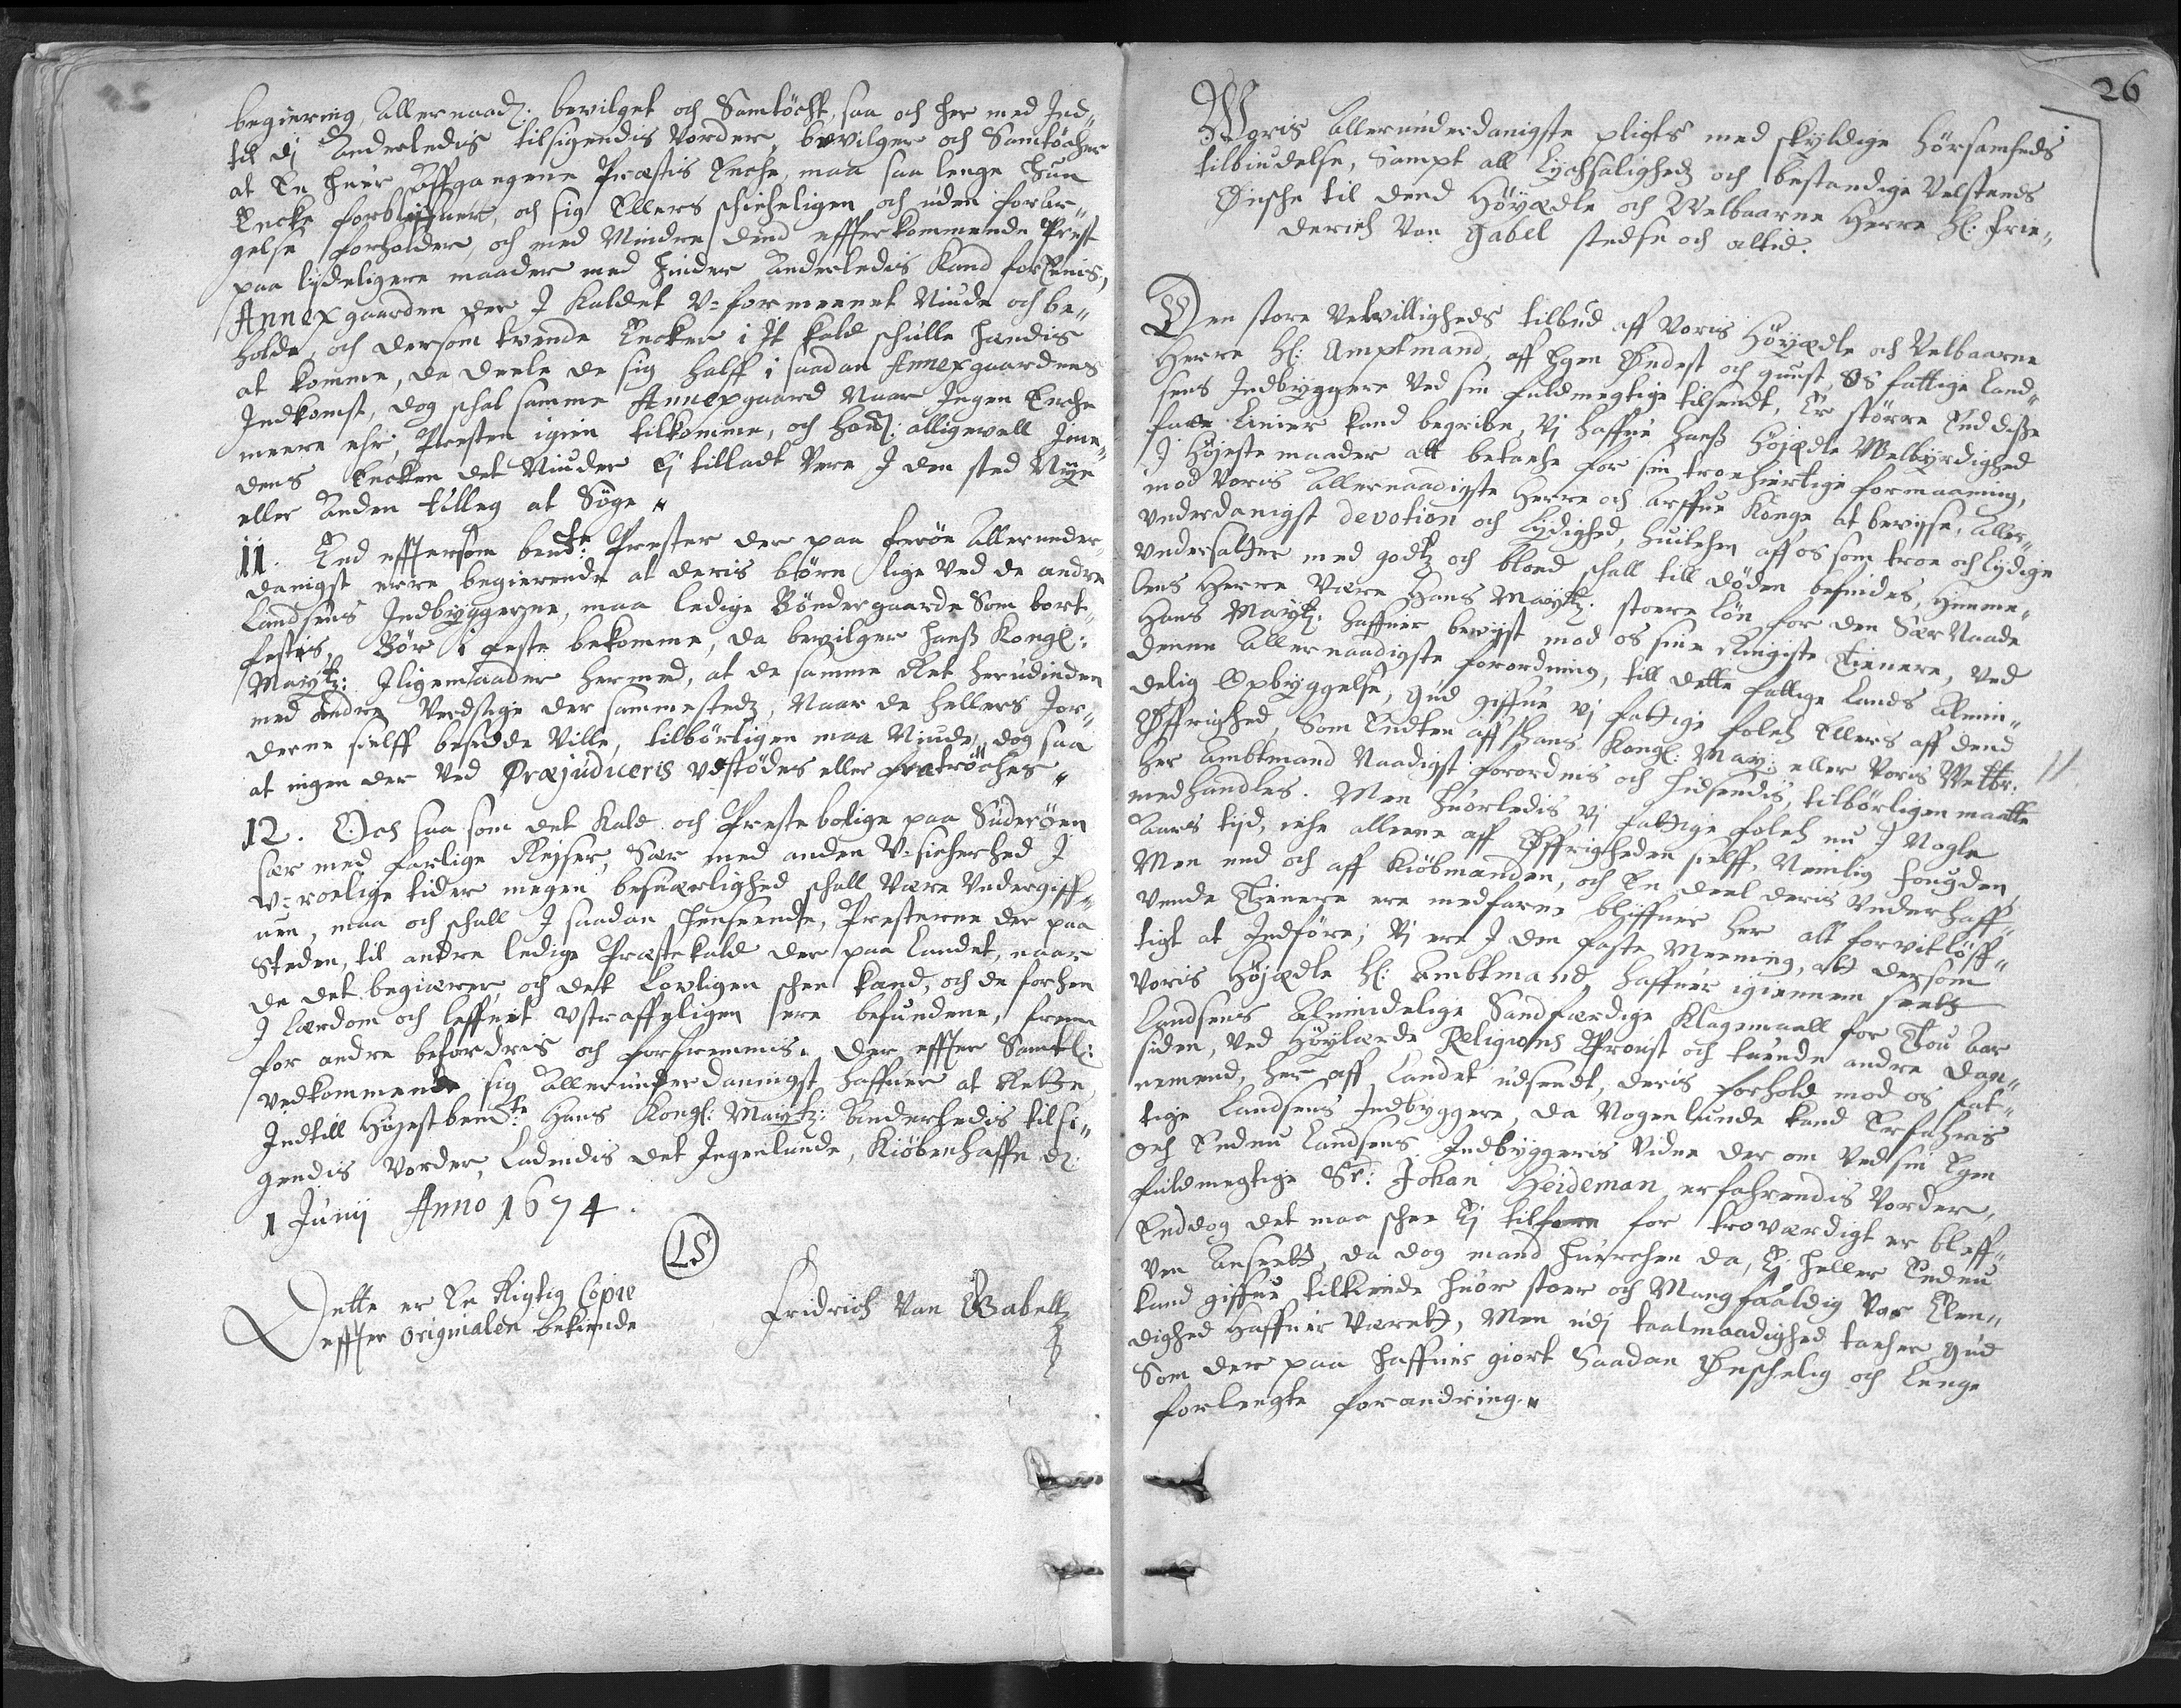 begiering, Allernaad: bevilget och Samtöcht, saa och her med Ind„
til dj Anderledis tilsigendis Vorder, bevilger och Samtöcher
at En huer Affgangene Præstis Encke, maa saa lenge Hun
Encke forbliffuer, och sig Ellers schicheligen och uden forar„
gelse forholder, och med Mindre dend effterkommende Prest
paa lydeligere maader med hinder Anderledis Kand foreenis,
Annexgaarden der I Kaldet V-formeenet Niude och be„
holde, och dersom tvende Encker i It kald schulle hendis
at komme, da deele de sig halff i saadan Annexgaardens
Indkomst, dog schal samme Annexgaard Naar Ingen Encke
meere ehr, Presten igien tilkomme, och hannem alligevell Ime„
dens Encken det Niuder Ej tilladt Vere I den sted Nye
eller Anden tillæg at Söge
11. End efftersom bemte: Prester der paa Feröe Allerunder„
danigst erre begierende at deris börn lige Ved de andre
Landsens Indbyggerne, maa ledige Böndergaarde Som bort„
festis, Bör i feste bekomme, da bevilger hanß Kongl:
Maytz: Iligemaader hermed, at de samme Ret herudinden
med andre Verdslige der sammestedz, Naar de hellers Jor„
derne sielff besidde Ville, tilbörligen maa Niude, dog saa
at ingen der Ved Præjudiceris Udstödes eller fratröches
12. Och saa som det Kald och Preste bolige paa Süderöen
er med farlige Rejser, Sær med anden V-sicherhed I
V-roelige tider megen besuærlighed schall Være Undergiff„
uen, maa och schall I saadan henseende, Presterne der paa
Steden, til andre ledige Præstekald der paa Landet, naar
de det begiærer, och det Lovligen schee kand, och de forhen
I Lærdom och Leffnet ustraffeligen ere befundene, frem
for andre befordris och forfremmis. Der effter Samtl:
vedkommende sig Allerunderdanigst haffuer at Rette,
Indtill Højestbemte: Hans Kongl: Maytz: Anderledis tilsi„
gendis Vorder, Ladendis det Ingenlunde, Kiöbenhaffn d:
1 Junij Anno 1674.
LS
Dette er En Rigtig Copie
effter originalen bekiende
Fridrich Van Gabell
26
Woris Allerunderdanigste pligts med skyldige hörsamheds
tilbiudelse, Sampt all Lychsalighedz och bestandige Velstands
Önsche til dend Höyædle och Welbaarne Herre Hl: Frie„
derich Von Gabel stedse och altid.
Den store Velvilligheds tilbud aff Voris Höyædle och Velbaarne
Herre Hl: Amptmand, aff Egen Yndest och gunst, Os fattige Land„
sens Indbyggere Ved sin fuldmegtige tilsendt, Er större End disse
faae Linier kand begribe, Vj haffue hanß Höjædle Welbyrdighed
I Höjeste maader att betacke for sin troe hiertige formaaning,
imod Voris Allernaadigste Herre och Arffue Konge at bevisse, Aller„
Underdanigst devotion och Lydighed, huilchen aff os som troe och lydige
Undersatter med godtz och bloed schall till döden befindes, himme„
lens Herre Være Hans Maytz: stoere Lön for den Sær Naade
Hans Maytz: haffuer bevist mod os sine Ringeste Tienere, Ved
denne Allernaadigste forordning, till dette fattige Lands Almin„
delig Opbyggelse, Gud giffue vj fattige folch Ellers aff dend
Öffrighed, Som Endten aff Hans Kongl: May: eller Voris Welbr:
Her Ambtmand Naadigst forordnis och hidsendis, tilbörligen maatte
medhandles. Men huorledis Vj fattige folch nu I Nogle
Aars tid, icke alleene aff Öffrigheden sielff, Nemlig fougden,
Men end och aff Kiöbmanden, och En deel deris Underhaff„
vende Tienere ere medfarne bliffuer her alt forvitlöff„
tigt at Indföre; Vj ere I den faste Meening, att dersom
Voris Höjædle Hl: Ambtmand, haffuer igiennem seet
Landsens Almindelige Sandfærdige Klagemaall for Tou Aar
siden, Ved Höylærde Religions Proust och tuende andre dan„
nemend, her aff Landet udsendt, deris forhold mod os fat„
tige Landsens Indbyggere, da Nogenlunde kand Erfahris
och Endnu Landsens Indbyggeris Vidne der om Ved sin Egen
fuldmegtige Sr: Johan Heideman erfahrendis Vorder,
Enddog det maa schee Ej tilforn for troværdigt er bleff„
ven Anseet, da dog mand huerchen da, Ej heller Endnu
kand giffue tilkiende huor stoer och Mangfaaldig Vor Elen„
dighed haffuer Været, Men udj taalmaadighed tacher Gud
Som der paa haffuer giort Saadan Önschelig och Lenge
forlengte forandring.